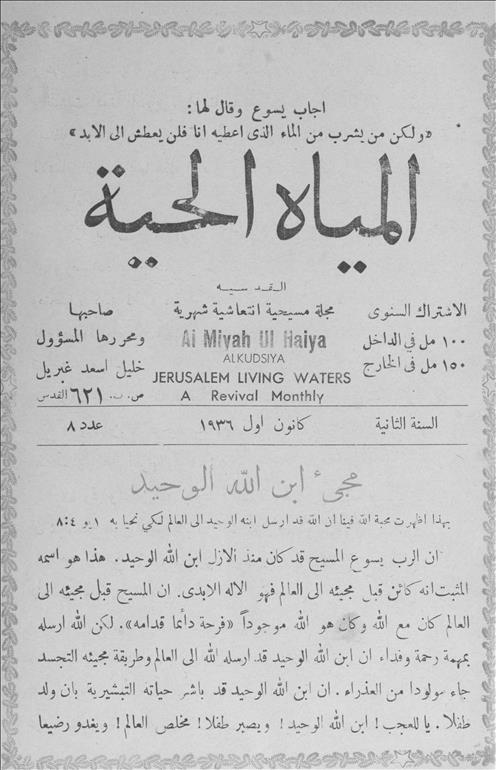 اجاب يسوع وقال لها :
«ولكن من يشرب من الماء الذى اعطيه انا فلن يعطش الى الابد»
المياه الحية
القدسيه
الاشتراك السنوى
١٠٠ مل في الداخل
١٥٠ مل فى الخارج
مجلة مسيحية انتعاشية شهرية
Al Miyah Ul Haiya
ALKUDSIYA
JERUSALEM LIVING WATERS
A Revival Monthly
صاحبها
ومحررها المسؤول
خليل اسعد غبريل
ص. ب. ٦٢١ القدس
السنة الثانية
كانون اول ١٩٣٦
عدد ٨
مجىء ابن الله الوحيد
بهذا اظهرت محبة الله فينا ان الله قد ارسل ابنه الوحيد الى العالم لكي نحيا به ١يو ٤:٨
ان الرب يسوع المسيح قد كان منذ الازل ابن الله الوحيد. هذا هو اسمه
المثبت انه كائن قبل مجيئه الى العالم فهو الاله الابدى. ان المسيح قبل مجيئه الى
العالم كان مع الله وكان هو الله موجوداً «فرحة دائما قدامه». لكن الله ارسله
بمهمة رحمة وفداء ان ابن الله الوحيد قد ارسله الله الى العالم وطريقة مجيئه التجسد
جاء مولودا من العذراء. ان ابن الله الوحيد قد باشر حياته التبشيرية بان ولد
طفلا. يا للعجب! ابن الله الوحيد! ويصير طفلا! مخلص العالم! ويغدو رضيعا